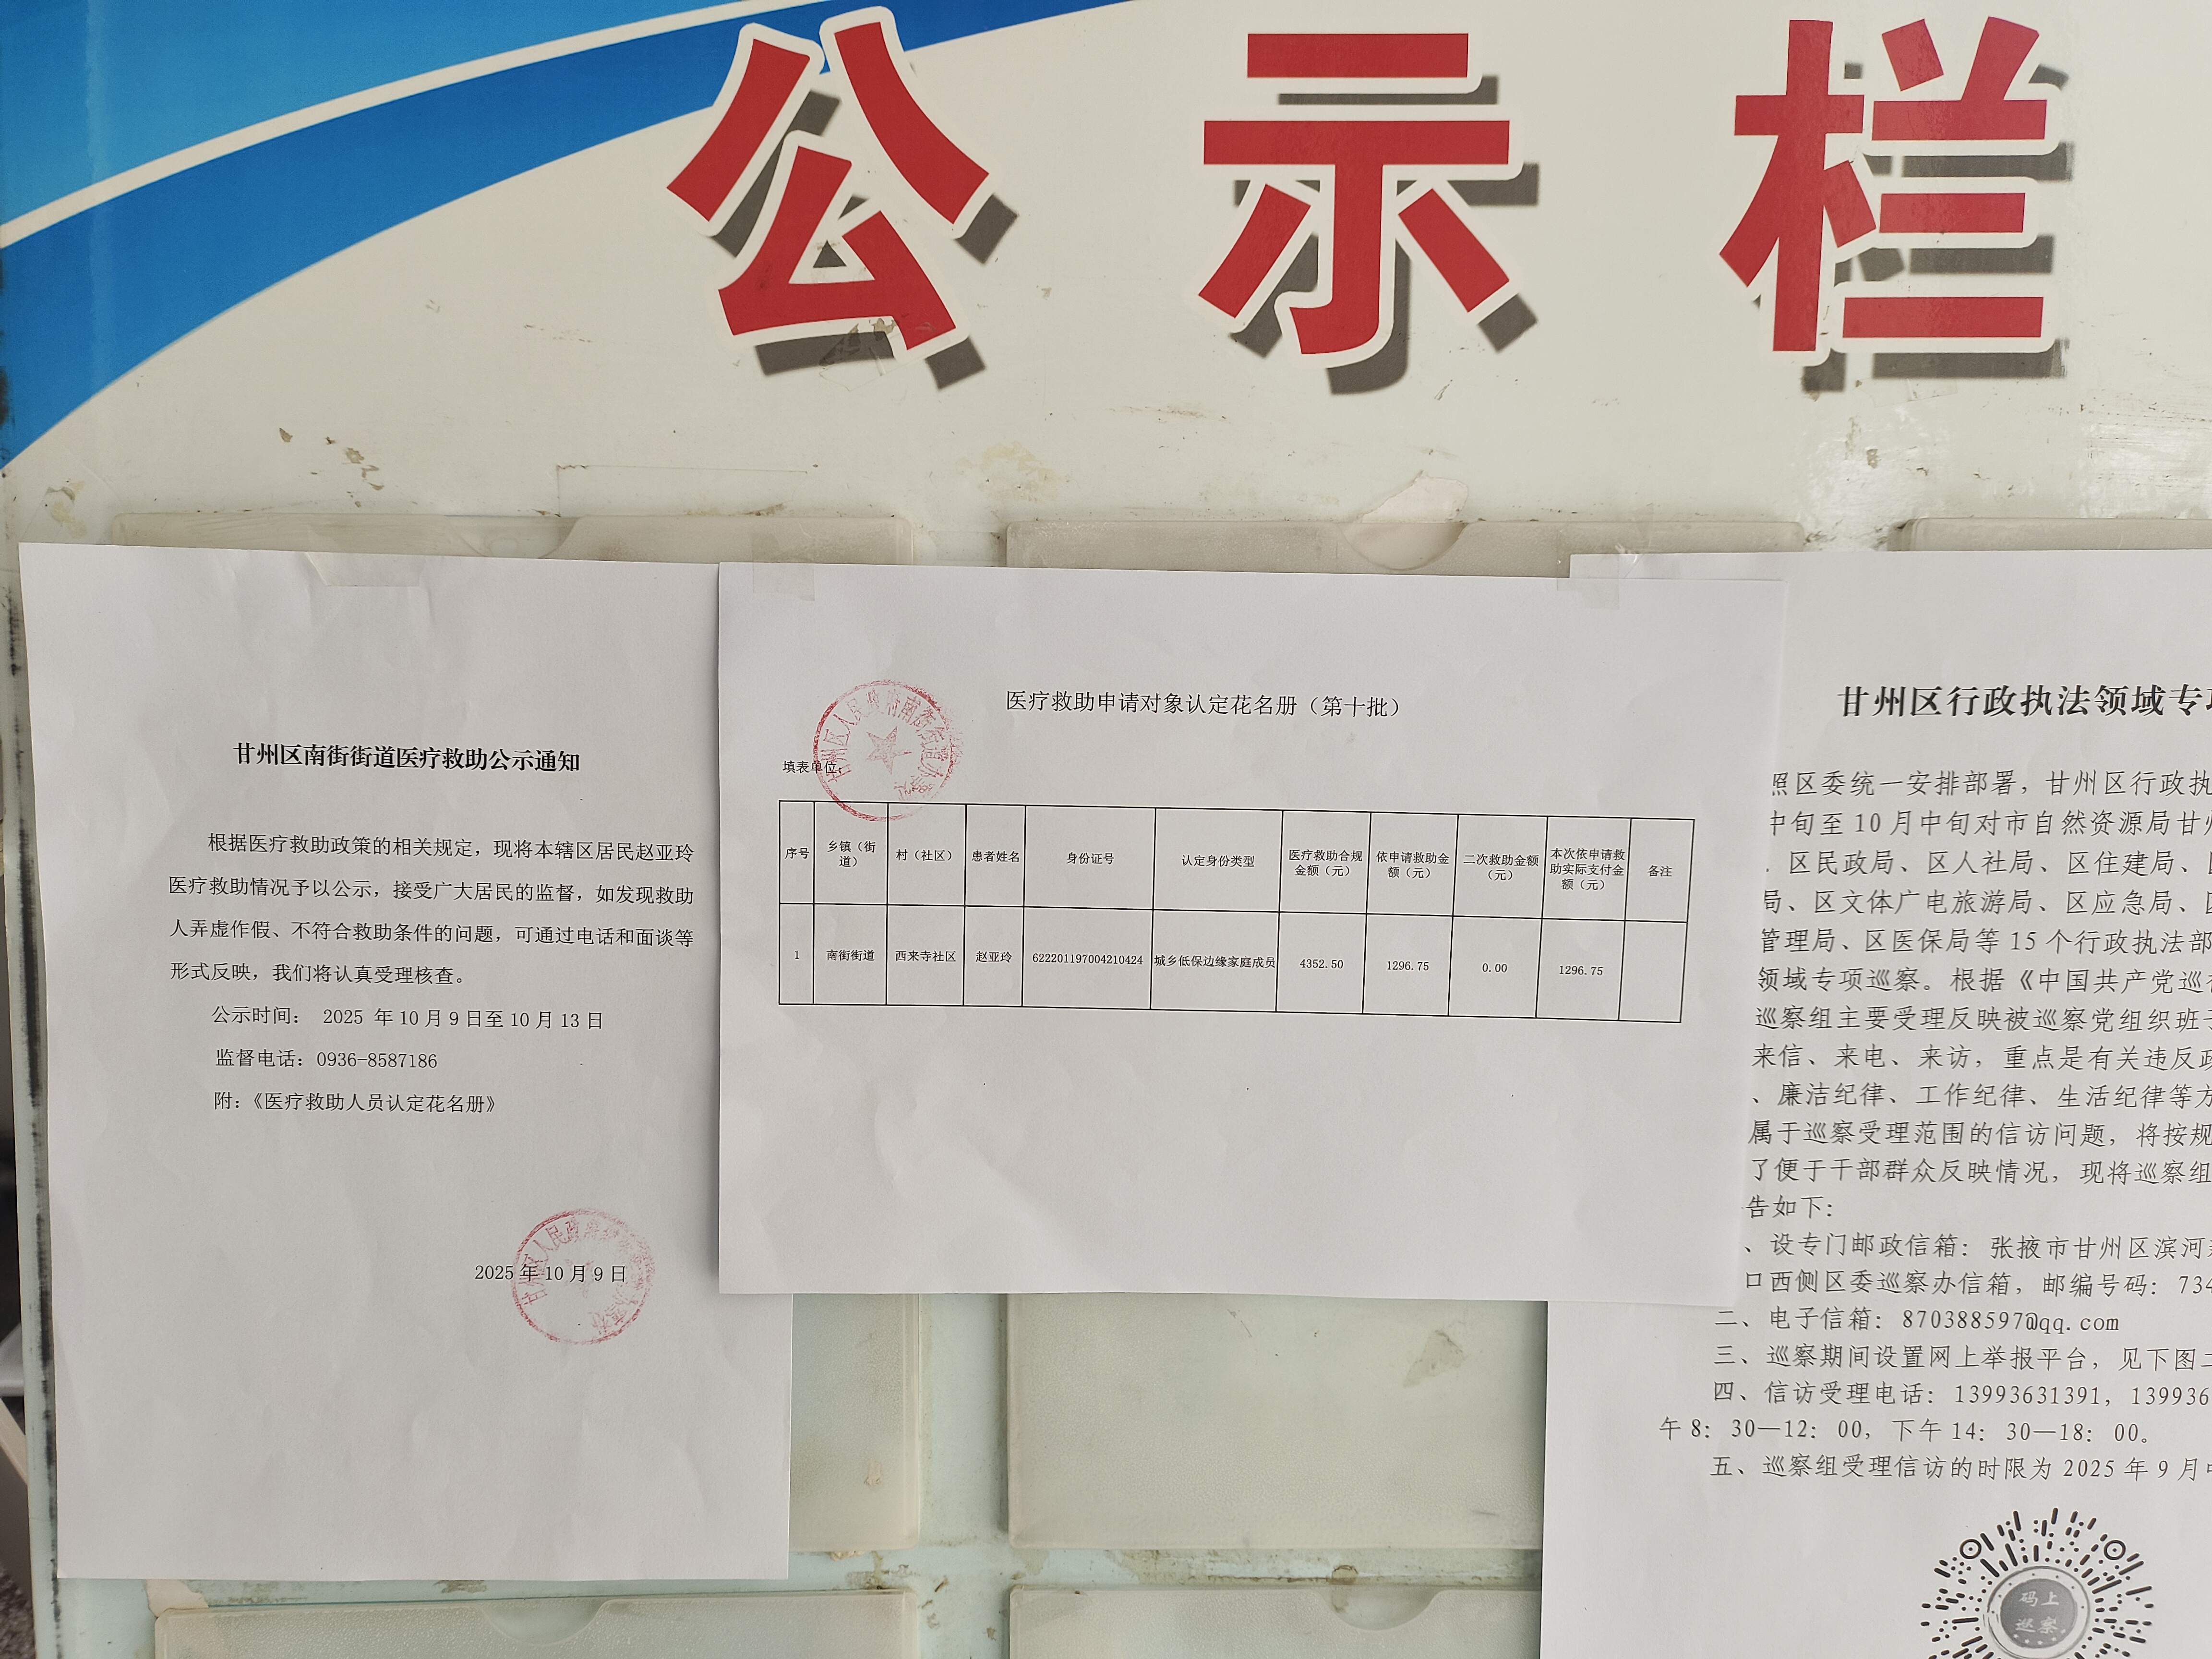 公示栏
甘州区南街街道医疗救助公示通知
根据医疗救助政策的相关规定，现将本辖区居民赵亚玲
医疗救助情况予以公示，接受广大居民的监督，如发现救助
人弄虚作假、不符合救助条件的问题，可通过电话和面谈等
形式反映，我们将认真受理核查。
公示时间： 2025 年 10 月 9 日至 10 月 13 日
监督电话：0936-8587186
附：《医疗救助人员认定花名册》
2025 年 10 月 9 日
医疗救助申请对象认定花名册（第十批）
填表单位：
序号 乡镇（街道） 村（社区） 患者姓名 身份证号 认定身份类型 医疗救助合规金额（元） 依申请救助金额（元） 二次救助金额（元） 本次依申请救助实际支付金额（元） 备注
1 南街街道 西来寺社区 赵亚玲 622201197004210424 城乡低保边缘家庭成员 4352.50 1296.75 0.00 1296.75
甘州区行政执法领域专
照区委统一安排部署，甘州区行政执
中旬至 10 月中旬对市自然资源局甘
区民政局、区人社局、区住建局、
局、区文体广电旅游局、区应急局、
管理局、区医保局等 15 个行政执法部
领域专项巡察。根据《中国共产党巡
巡察组主要受理反映被巡察党组织班
来信、来电、来访，重点是有关违反
、廉洁纪律、工作纪律、生活纪律等方
属于巡察受理范围的信访问题，将按规
了便于干部群众反映情况，现将巡察组
告如下：
、设专门邮政信箱：张掖市甘州区滨河
口西侧区委巡察办信箱，邮编号码：734
二、电子信箱：870388597@qq.com
三、巡察期间设置网上举报平台，见下图
四、信访受理电话：13993631391，139936
午 8：30—12：00，下午 14：30—18：00。
五、巡察组受理信访的时限为 2025 年 9 月
码上
巡察